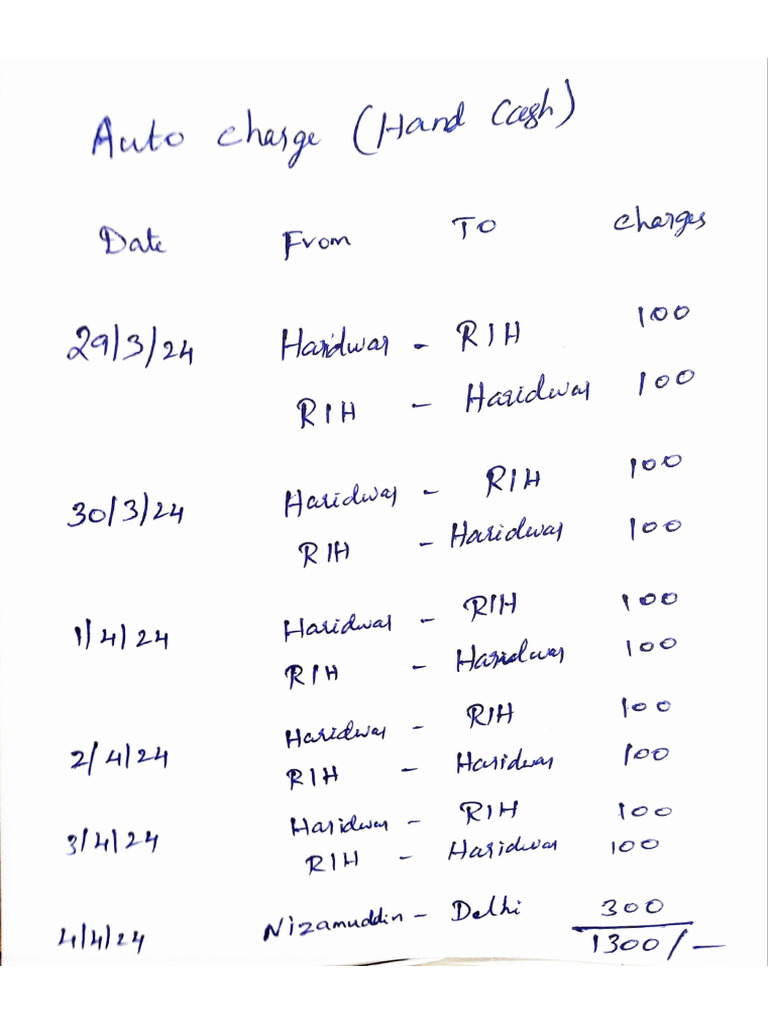 Auto charge (Hand Cash)
Date From To Charges
29/3/24 Haridwar - RIH 100
RIH - Haridwar 100
30/3/24 Haridwar - RIH 100
RIH - Haridwar 100
1/4/24 Haridwar - RIH 100
RIH - Haridwar 100
2/4/24 Haridwar - RIH 100
RIH - Haridwar 100
3/4/24 Haridwar - RIH 100
RIH - Haridwar 100
4/4/24 Nizamuddin - Delhi 300
1300/-